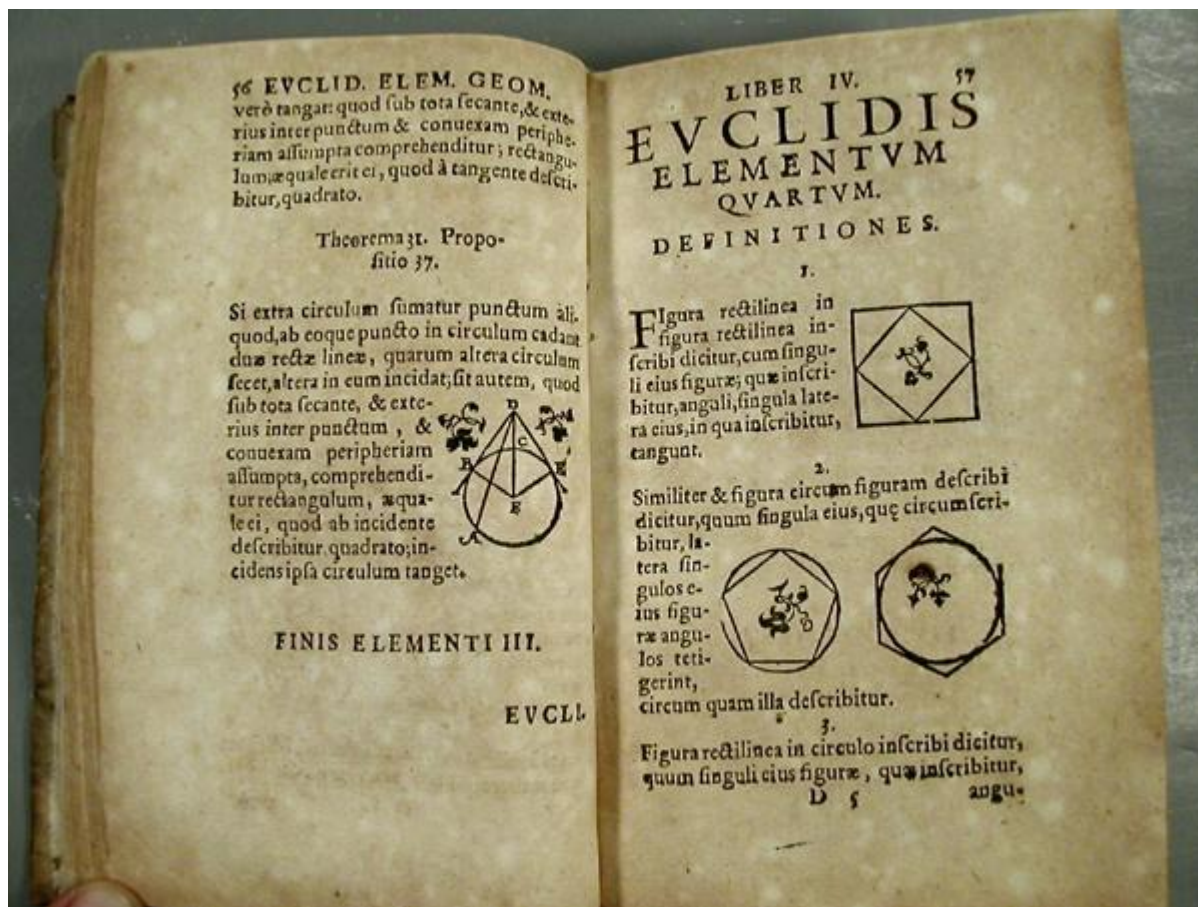 56 EVCLID. ELEM. GEOM.
verò tangat: quod ſub tota ſecante, & exte-
rius inter punctum & conuexam periphe-
riam aſſumpta comprehenditur; rectangu-
lum; æquale erit ei, quod à tangente deſcri-
bitur, quadrato.
Theorema 31. Propo-
ſitio 37.
Si extra circulum ſumatur punctum àli-
quod, ab eoque puncto in circulum cadant
duæ rectæ lineæ, quarum altera circulum
ſecet, altera in eum incidat; ſit autem, quod
ſub tota ſecante, & exte-
rius inter punctum, &
conuexam peripheriam
aſſumpta, comprehendi-
tur rectangulum, æqua-
le ei, quod ab incidente
deſcribitur quadrato; in-
cidens ipſa circulum tanget.
D
C
B E
F
A
FINIS ELEMENTI III.
EVCLI-
LIBER IV. 57
EVCLIDIS
ELEMENTVM
QVARTVM.
DEFINITIONES.
1.
FIgura rectilinea in
figura rectilinea in-
ſcribi dicitur, cum ſingu-
li eius figuræ; quæ inſcri-
bitur, anguli, ſingula late-
ra eius, in qua inſcribitur,
tangunt.
2.
Similiter & figura circum figuram deſcribi
dicitur, quum ſingula eius, quę circumſcri-
bitur, la-
tera ſin-
gulos e-
ius figu-
ræ angu-
los teti-
gerint,
circum quam illa deſcribitur.
3.
Figura rectilinea in circulo inſcribi dicitur,
quum ſinguli eius figuræ, quæ inſcribitur,
D 5 angu-